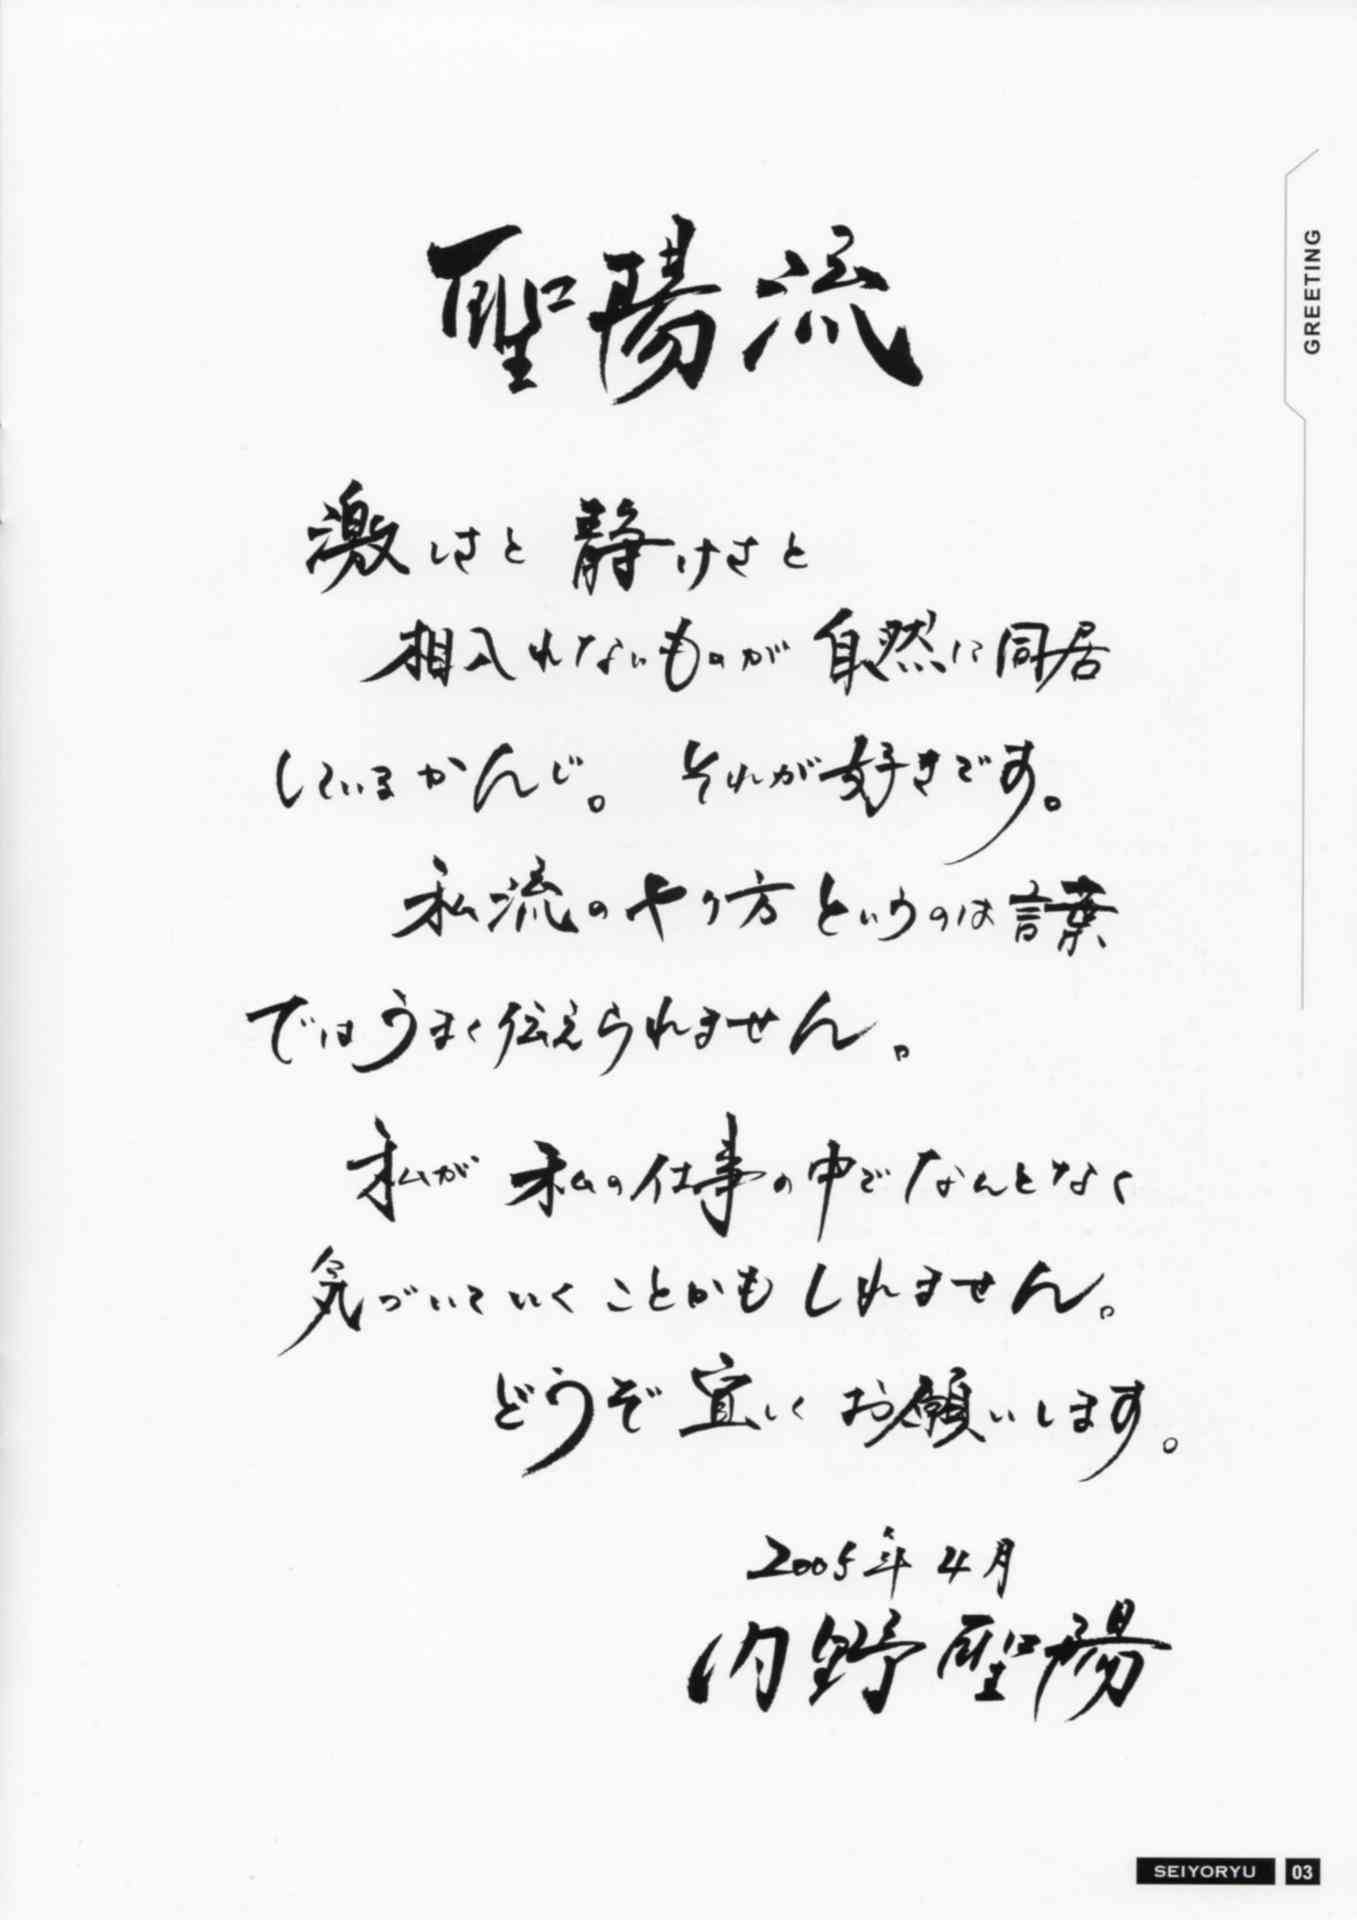 GREETING
聖陽流
激しさと 静けさと
相入れないものが 自然に同居
しているかんじ。 それが好きです。
私流のやり方というのは言葉
ではうまく伝えられません。
私が 私の仕事の中でなんとなく
気づいていくことかもしれません。
どうぞ 宜しく お願いします。
2005年 4月
内野聖陽
SEIYORYU 03